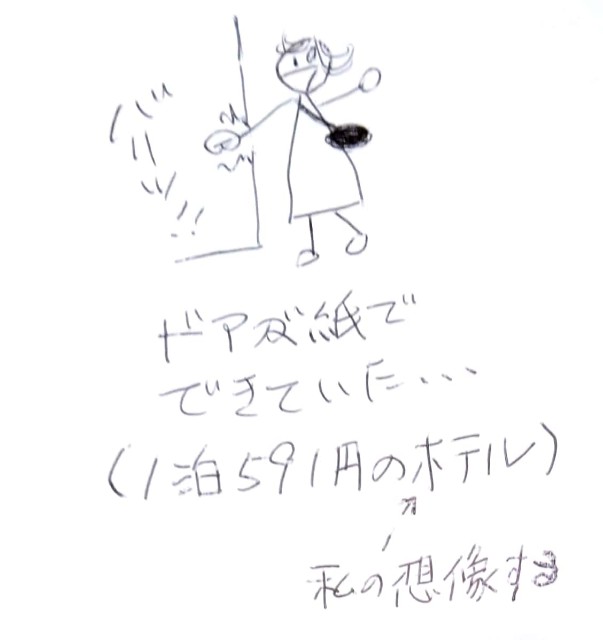 バリッ!!
ドアが紙で
できていた...
(1泊591円のホテル)
私の想像する